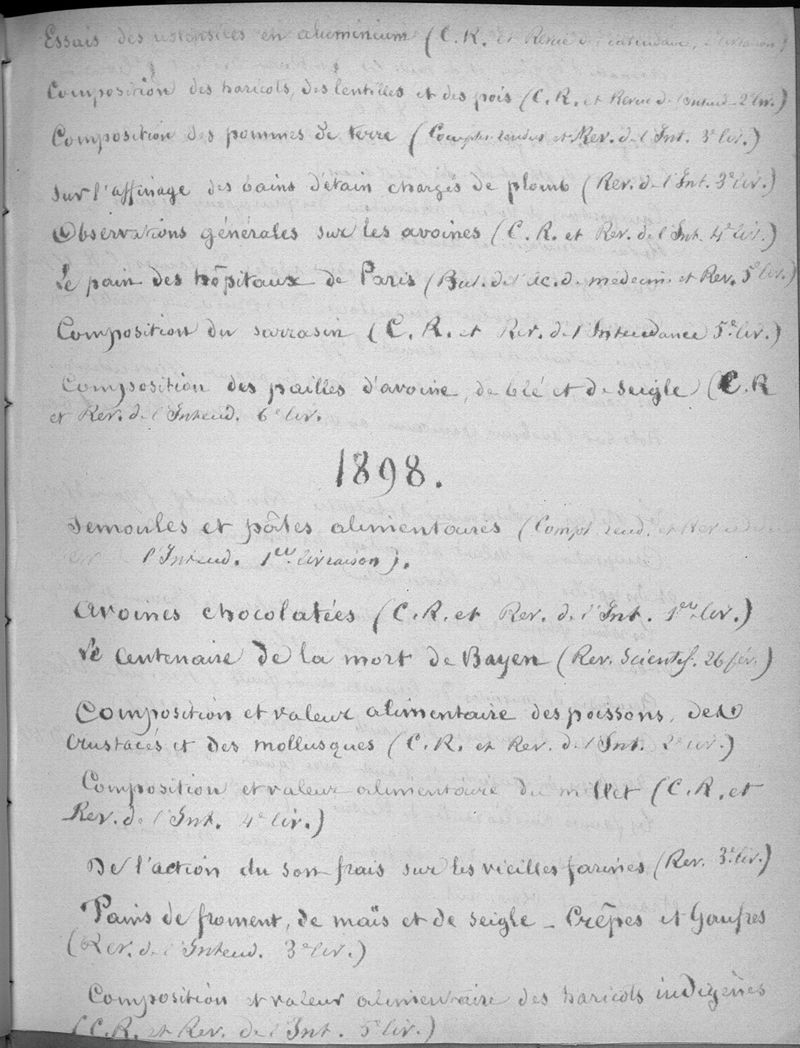 Essais des ustensiles en aluminium (C. R. et Revue de l'intendance, livraison)
Composition des haricots, des lentilles et des pois (C. R. et Revue de l'Intend. 2e liv.)
Composition des pommes de terre (Comptes rendus et Rev. de l'Int. 3e liv.)
Sur l'affinage des bains d'étain chargés de plomb (Rev. de l'Int. 3e liv.)
Observations générales sur les avoines (C. R. et Rev. de l'Int. 4e liv.)
Le pain des hôpitaux de Paris (Bul. de l'Ac. de médecine et Rev. 5e liv)
Composition du sarrasin (C. R. et Rev. de l'Intendance 5e liv.)
Composition des pailles d'avoine, de blé et de seigle (C. R
et Rev. de l'Intend. 6e liv.
1898.
Semoules et pâtes alimentaires (Compt. rend. et Revue
l'Intend. 1ere livraison).
Avoines chocolatées (C. R. et Rev. de l'Int. 1ere liv.)
Le Centenaire de la mort de Bayen (Rev. Scientif. 26 fév.)
Composition et valeur alimentaire des poissons, des
crustacés et des mollusques (C. R. et Rev. de l'Int. 2e liv.)
Composition et valeur alimentaire du millet (C. R. et
Rev. de l'Int. 4e liv.)
De l'action du son frais sur les vieilles farines (Rev. 3e liv.)
Pains de froment, de maïs et de seigle - Crêpes et Gaufres
(Rev. de l'Intend. 3e liv.)
Composition et valeur alimentaire des haricots indigènes
(C. R. et Rev. de l'Int. 5e liv.)